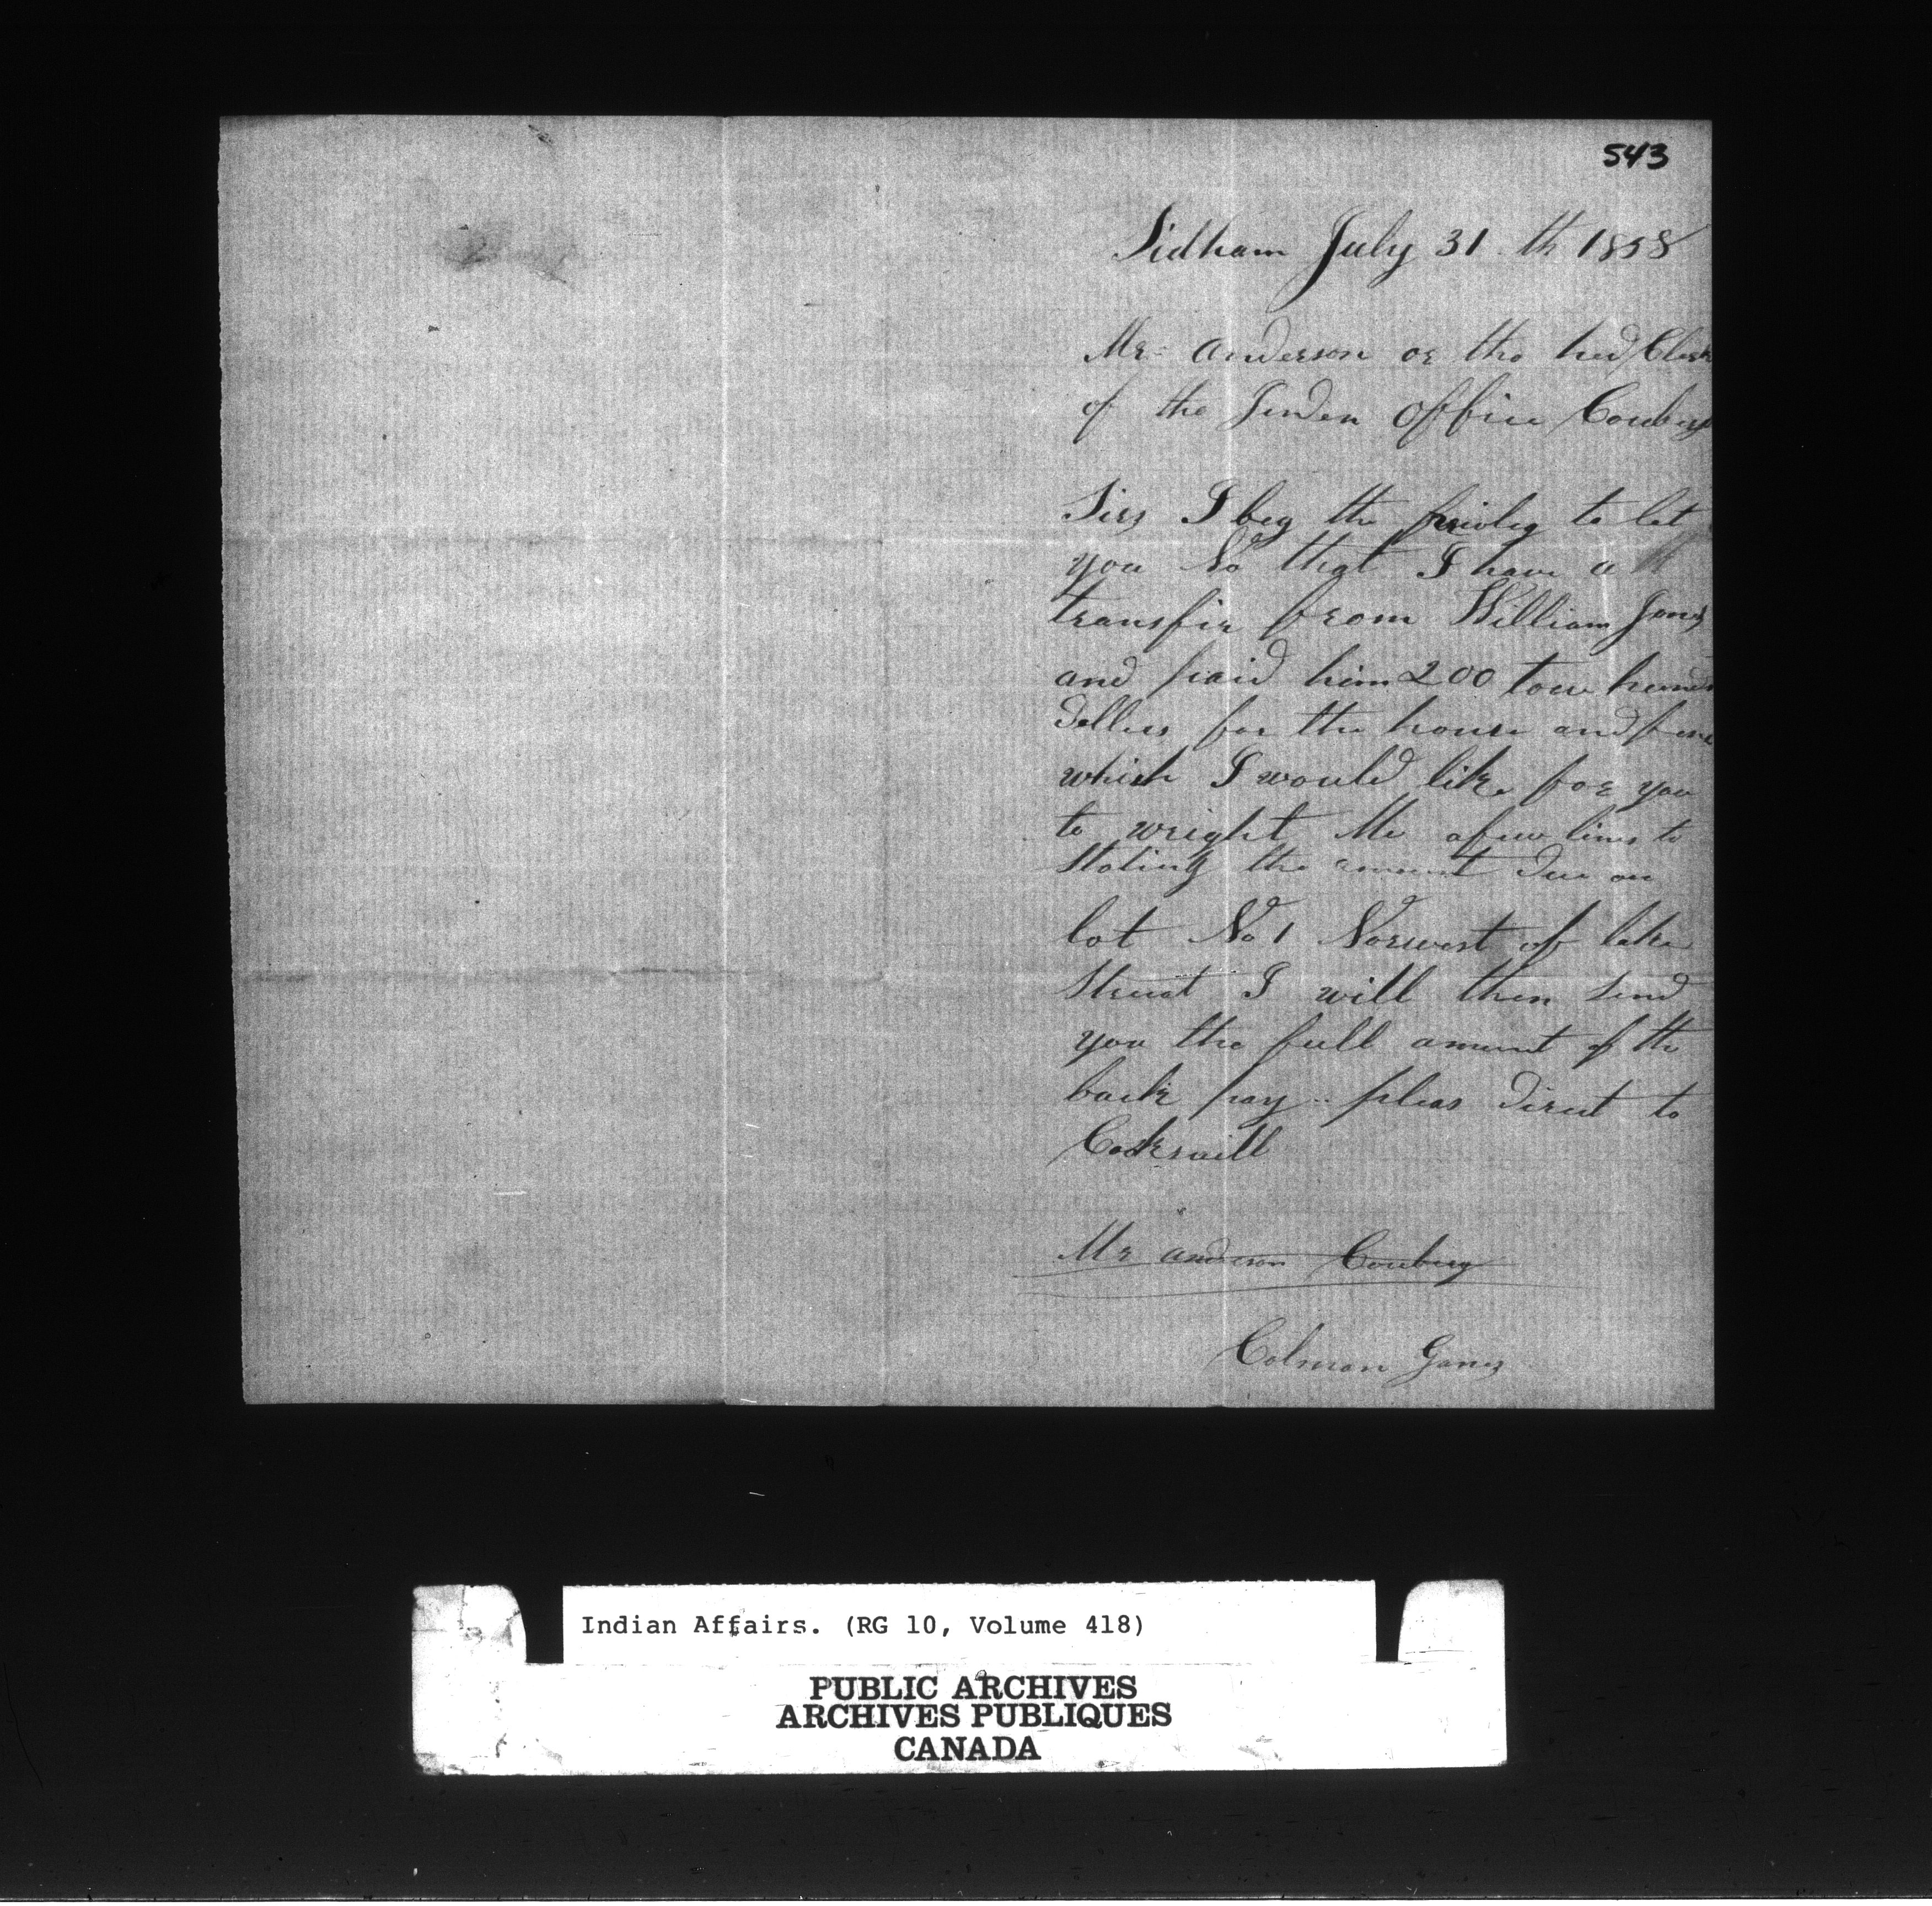 543
Sidham July 31 th 1858
Mr anderson or the hed Clerk
of the Inden office Couberg
Sirs I beg the privleg to let
you No that I have a
transfir from William Jones
and paid him 200 tow hund
dollers for the house and fenc
which I would like for you
to wright Me a few lines to
stating the amount due on
lot No 1 Norwest of lake
Street I will then send
you the full amunt of the
back pay pleas direct to
Cooksvill
Mr anderson Couberg
Colman Jones
Indian Affairs. (RG 10, Volume 418)
PUBLIC ARCHIVES
ARCHIVES PUBLIQUES
CANADA